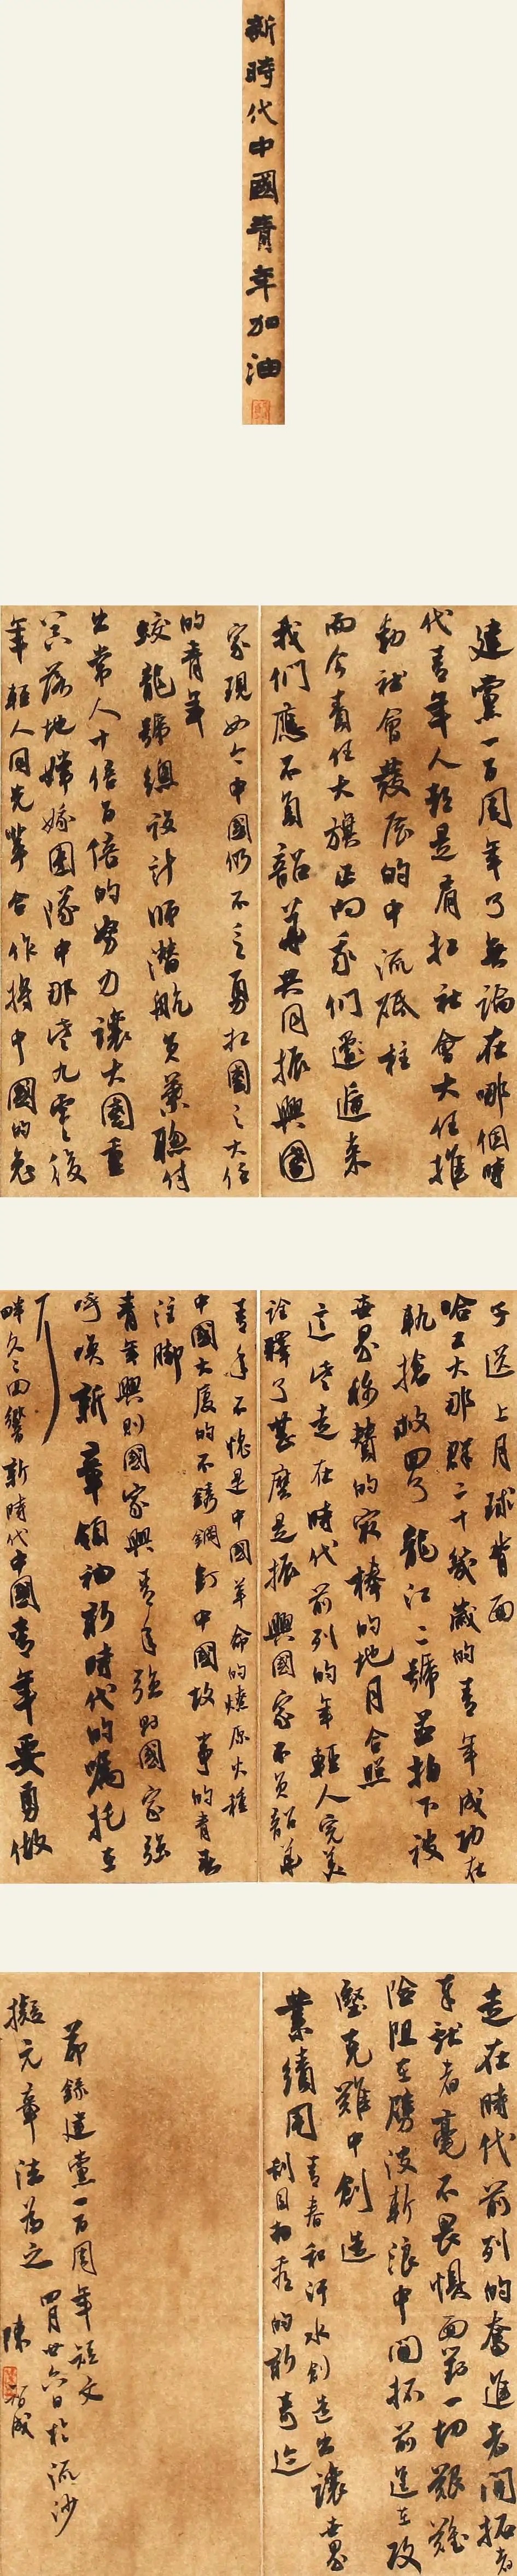 新時代中國青年加油
建黨一百周年了無論在哪個時
代青年人都是肩扛社會大任推
動社會發展的中流砥柱
而今責任大旗正向我們遞過來
我們應不負韶華共同振興國
家現如今中國仍不乏勇扛國之大任
的青年
蛟龍號總設計師潛航員葉聰付
出常人十倍百倍的努力讓大國重
器落地嫦娥團隊中那些九零後
年輕人同先輩合作將中國的兔
子送上月球背面
哈工大那群二十幾歲的青年成功在
軌搶救回了龍江二號並拍下被
世界稱贊的最棒的地月合照
這些走在時代前列的年輕人完美
詮釋了甚麼是振興國家不負韶華
青年不愧是中國革命的燎原火種
中國大廈的不銹鋼釘中國故事的青春
注腳
青年興則國家興青年強則國家強
呼喚新章領袖新時代的囑托在
耳
畔久久回響新時代中國青年要勇做
走在時代前列的奮進者開拓者
奉獻者毫不畏懼面對一切艱難
險阻在劈波斬浪中開拓前進在攻
堅克難中創造
業績用青春和汗水創造出讓世界
刮目相看的新奇迹
節錄建黨一百周年短文
擬元章法爲之
四月廿六日於流沙
陳